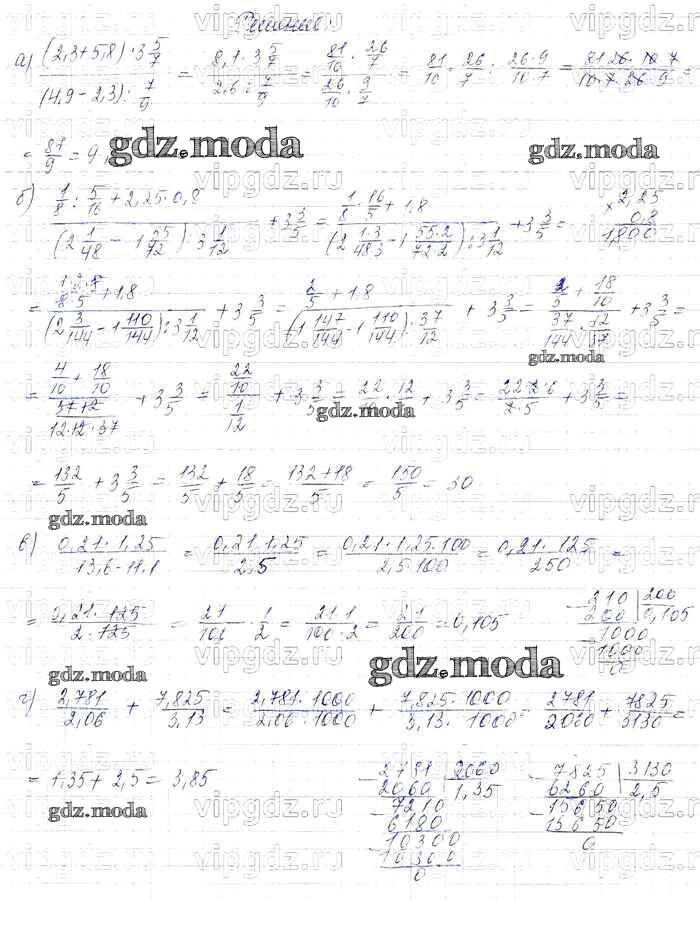 Решение:
а) (2,3+5,8)·3 5/7 / (4,9-2,3): 7/9 = 8,1·3 5/7 / 2,6: 7/9 = 81/10 · 26/7 / 26/10 · 9/7 = 81/10 · 26/7 : 26·9/10·7 = 81·26·10·7 / 10·7·26·9 =
= 81/9 = 9
gdz.moda
gdz.moda
б) 1/8 : 5/16 + 2,25·0,8 / (2 1/48 - 1 55/72) : 3 1/12 + 3 3/5 = 1/8 · 16/5 + 1,8 / (2 1·3/48·3 - 1 55·2/72·2) : 3 1/12 + 3 3/5 = × 2,25 0,8 1,800
= 1·2·8/8·5 + 1,8 / (2 3/144 - 1 110/144) : 3 1/12 + 3 3/5 = 2/5 + 1,8 / (1 147/144 - 1 110/144) : 37/12 + 3 3/5 = 2/5 + 18/10 / 37/144 · 12/37 + 3 3/5 =
gdz.moda
= 4/10 + 18/10 / 37·12/12·12·37 + 3 3/5 = 22/10 / 1/12 + 3 3/5 = 22/10 · 12 + 3 3/5 = 22·2·6/2·5 + 3 3/5 =
gdz.moda
= 132/5 + 3 3/5 = 132/5 + 18/5 = 132+18/5 = 150/5 = 30
gdz.moda
в) 0,21·1,25 / 13,6-11,1 = 0,21·1,25 / 2,5 = 0,21·1,25·100 / 2,5·100 = 0,21·125 / 250 =
= 0,21·125 / 2·125 = 21/100 · 1/2 = 21·1/100·2 = 21/200 = 0,105
210 200
200 0,105
1000
1000
0
gdz.moda
gdz.moda
г) 2,781/2,06 + 7,825/3,13 = 2,781·1000/2,06·1000 + 7,825·1000/3,13·1000 = 2781/2060 + 7825/3130 =
= 1,35 + 2,5 = 3,85
gdz.moda
2781 2060
2060 1,35
7210
6180
10300
10300
0
7825 3130
6260 2,5
15650
15650
0
gdz.moda
vipgdz.ru